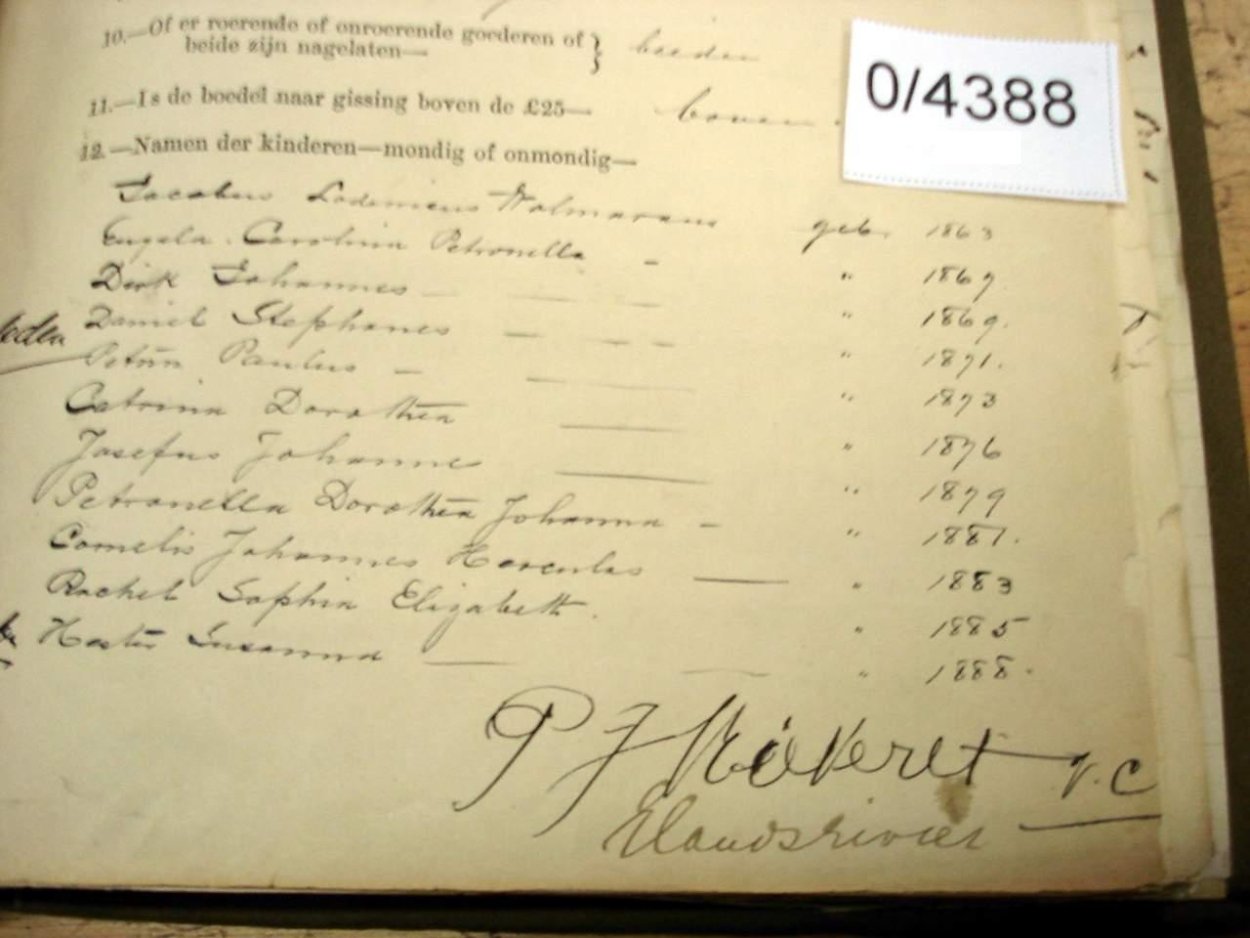 10.—Of er roerende of onroerende goederen of } beiden
beide zijn nagelaten—
0/4388
11.—Is de boedel naar gissing boven de £25— boven
12.—Namen der kinderen—mondig of onmondig—
Jacobus Lodewicus Wolmarans geb. 1863
Engela Carolina Petronella - " 1867
Dirk Johannes — " 1869.
Daniel Stephanes — " 1871.
Paulus — " 1873
Catrina Dorothea — " 1876
Josefus Johannes — " 1879
Petronella Dorothea Johanna - " 1881.
Cornelis Johannes Hercules — " 1883
Rachel Sophia Elizabeth. " 1885
Hester Susanna — " 1888.
P J v.c
Elandsrivier